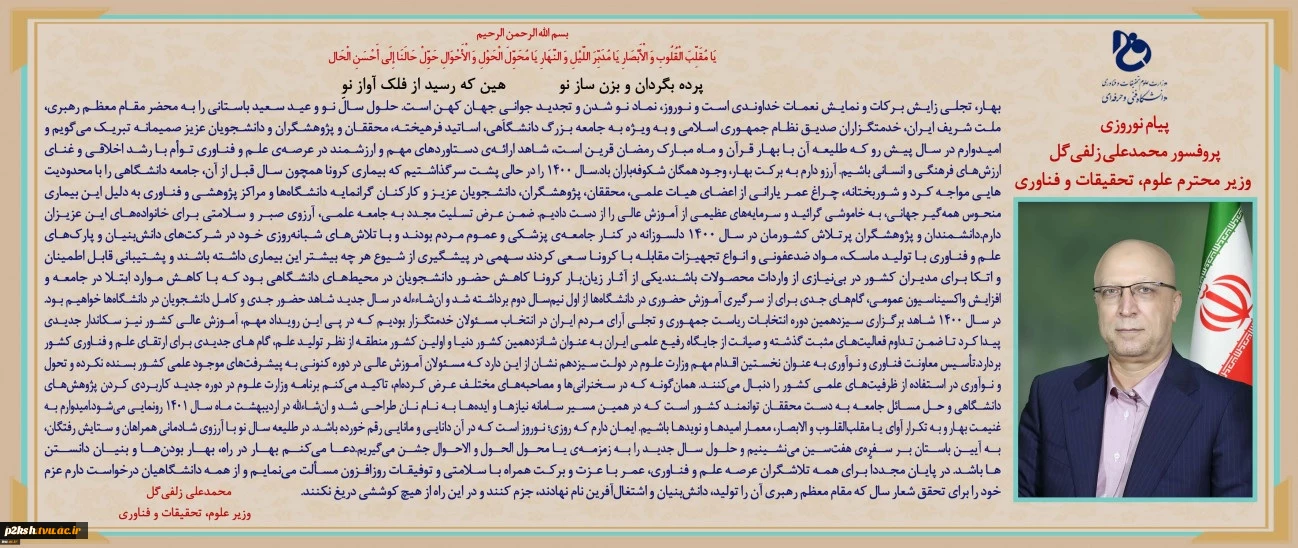 بسم الله الرحمن الرحیم
یَا مُقَلِّبَ الْقُلُوبِ وَ الْأَبْصَارِ یَا مُدَبِّرَ اللَّیْلِ وَ النَّهَارِ یَا مُحَوِّلَ الْحَوْلِ وَ الْأَحْوَالِ حَوِّلْ حَالَنَا إِلَى أَحْسَنِ الْحَالِ
پرده بگردان و بزن ساز نو هین که رسید از فلک آواز نو
وزارت علوم، تحقیقات و فناوری
دانشگاه فنی و حرفه‌ای
پیام نوروزی
پروفسور محمدعلی زلفی‌گل
وزیر محترم علوم، تحقیقات و فناوری
بهار، تجلی زایش برکات و نمایش نعمات خداوندی است و نوروز، نماد نو شدن و تجدید جوانی جهان کهن است. حلول سال نو و عید سعید باستانی را به محضر مقام معظم رهبری،
ملت شریف ایران، خدمتگزاران صدیق نظام جمهوری اسلامی و به ویژه به جامعه بزرگ دانشگاهی، اساتید فرهیخته، محققان و پژوهشگران و دانشجویان عزیز صمیمانه تبریک می‌گویم و
امیدوارم در سال پیش رو که طلیعه آن با بهار قرآن و ماه مبارک رمضان قرین است، شاهد ارائه‌ی دستاوردهای مهم و ارزشمند در عرصه‌ی علم و فناوری توأم با رشد اخلاقی و غنای
ارزش‌های فرهنگی و انسانی باشیم. آرزو دارم به برکت بهار، وجود همگان شکوفه‌باران باد.سال ۱۴۰۰ را در حالی پشت سرگذاشتیم که بیماری کرونا همچون سال قبل از آن، جامعه دانشگاهی را با محدودیت
هایی مواجه کرد و شوربختانه، چراغ عمر یارانی از اعضای هیات علمی، محققان، پژوهشگران، دانشجویان عزیز و کارکنان گرانمایه دانشگاه‌ها و مراکز پژوهشی و فناوری به دلیل این بیماری
منحوس همه‌گیر جهانی، به خاموشی گرائید و سرمایه‌های عظیمی از آموزش عالی را از دست دادیم. ضمن عرض تسلیت مجدد به جامعه علمی، آرزوی صبر و سلامتی برای خانواده‌های این عزیزان
دارم.دانشمندان و پژوهشگران پرتلاش کشورمان در سال ۱۴۰۰ دلسوزانه در کنار جامعه‌ی پزشکی و عموم مردم بودند و با تلاش‌های شبانه‌روزی خود در شرکت‌های دانش‌بنیان و پارک‌های
علم و فناوری با تولید ماسک، مواد ضدعفونی و انواع تجهیزات مقابله با کرونا سعی کردند سهمی در پیشگیری از شیوع هر چه بیشتر این بیماری داشته باشند و پشتیبانی قابل اطمینان
و اتکا برای مدیران کشور در بی‌نیازی از واردات محصولات باشند.یکی از آثار زیان‌بار کرونا کاهش حضور دانشجویان در محیط‌های دانشگاهی بود که با کاهش موارد ابتلا در جامعه و
افزایش واکسیناسیون عمومی، گام‌های جدی برای از سرگیری آموزش حضوری در دانشگاه‌ها از اول نیم‌سال دوم برداشته شد و ان‌شاءله در سال جدید شاهد حضور جدی و کامل دانشجویان در دانشگاه‌ها خواهیم بود.
در سال ۱۴۰۰ شاهد برگزاری سیزدهمین دوره انتخابات ریاست جمهوری و تجلی آرای مردم ایران در انتخاب مسئولان خدمتگزار بودیم که در پی این رویداد مهم، آموزش عالی کشور نیز سکاندار جدیدی
پیدا کرد تا ضمن تداوم فعالیت‌های مثبت گذشته و صیانت از جایگاه رفیع علمی ایران به عنوان شانزدهمین کشور دنیا و اولین کشور منطقه از نظر تولید علم، گام های جدیدی برای ارتقای علم و فناوری کشور
بردارد.تأسیس معاونت فناوری و نوآوری به عنوان نخستین اقدام مهم وزارت علوم در دولت سیزدهم نشان از این دارد که مسئولان آموزش عالی در دوره کنونی به پیشرفت‌های موجود علمی کشور بسنده نکرده و تحول
و نوآوری در استفاده از ظرفیت‌های علمی کشور را دنبال می‌کنند. همان‌گونه که در سخنرانی‌ها و مصاحبه‌های مختلف عرض کرده‌ام، تاکید می‌کنم برنامه وزارت علوم در دوره جدید کاربردی کردن پژوهش‌های
دانشگاهی و حل مسائل جامعه به دست محققان توانمند کشور است که در همین مسیر سامانه نیازها و ایده‌ها به نام نان طراحی شد و ان‌شاءلله در اردیبهشت ماه سال ۱۴۰۱ رونمایی می‌شود.امیدوارم به
غنیمت بهار و به تکرار آوای یا مقلب‌القلوب و الابصار، معمار امیدها و نویدها باشیم. ایمان دارم که روزی؛ نوروز است که در آن دانایی و مانایی رقم خورده باشد. در طلیعه سال نو با آرزوی شادمانی همراهان و ستایش رفتگان،
به آیین باستان بر سفره‌ی هفت‌سین می‌نشینیم و حلول سال جدید را به زمزمه‌ی یا محول الحول و الاحوال جشن می‌گیریم.دعا می‌کنم بهار در راه، بهار بودن‌ها و بنیان دانستن
ها باشد. در پایان مجدداً برای همه تلاشگران عرصه علم و فناوری، عمر با عزت و برکت همراه با سلامتی و توفیقات روزافزون مسألت می‌نمایم و از همه دانشگاهیان درخواست دارم عزم
خود را برای تحقق شعار سال که مقام معظم رهبری آن را تولید، دانش‌بنیان و اشتغال‌آفرین نام نهادند، جزم کنند و در این راه از هیچ کوششی دریغ نکنند.
محمدعلی زلفی‌گل
وزیر علوم، تحقیقات و فناوری
p2ksh.tvu.ac.ir